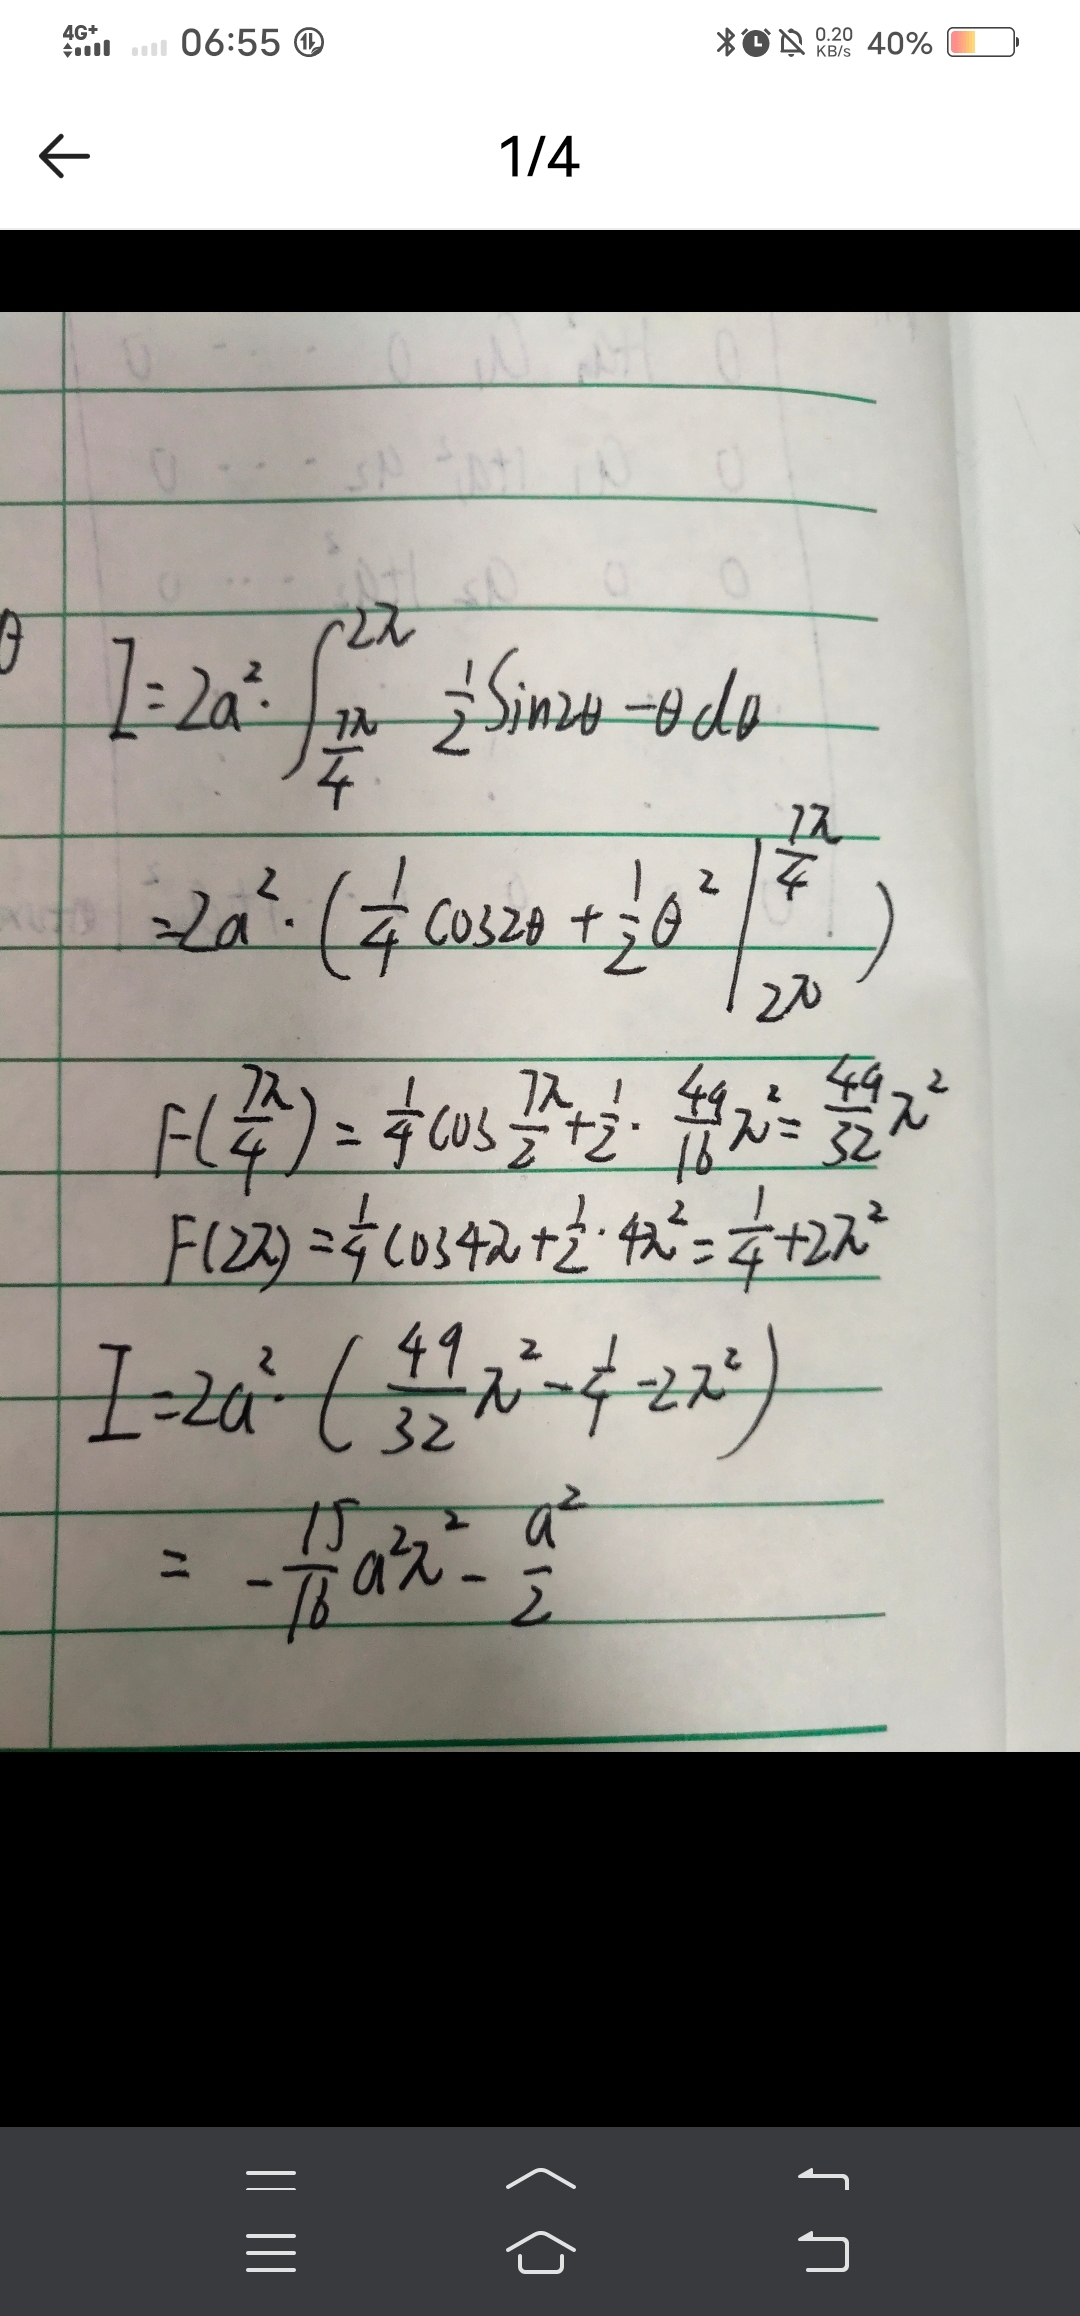 4G+ 06:55 0.20 KB/s 40%
1/4
θ I=2a²·∫_{7π/4}^{2π} 1/2 Sin2θ -θ dθ
=2a²·(1/4 cos2θ + 1/2 θ² |_{2π}^{7π/4})
F(7π/4) = 1/4 cos 7π/2 + 1/2 · 49/16 π² = 49/32 π²
F(2π) = 1/4 cos4π + 1/2 · 4π² = 1/4 + 2π²
I=2a²·(49/32 π² - 1/4 - 2π²)
= - 15/16 a²π² - a²/2